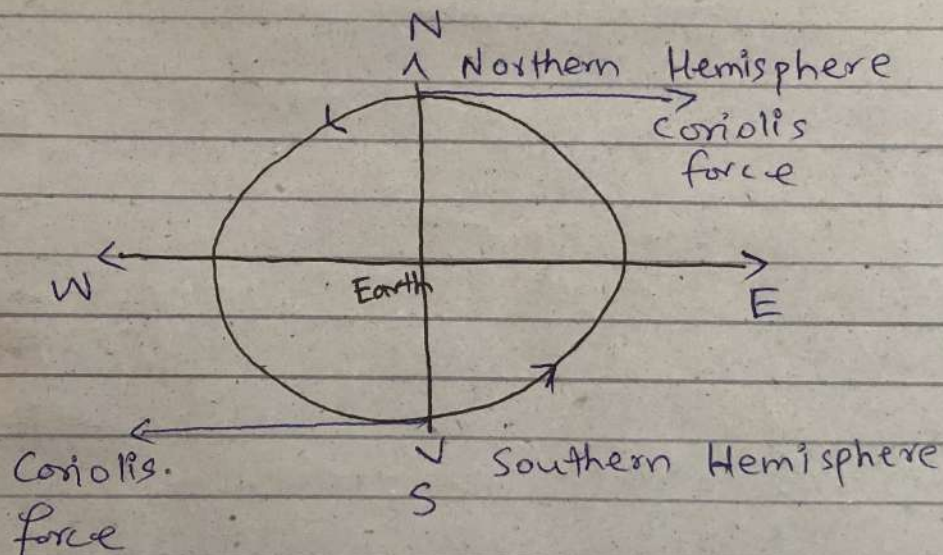 N
Northern Hemisphere
Coriolis
force
W
Earth
E
Coriolis.
force
Southern Hemisphere
S